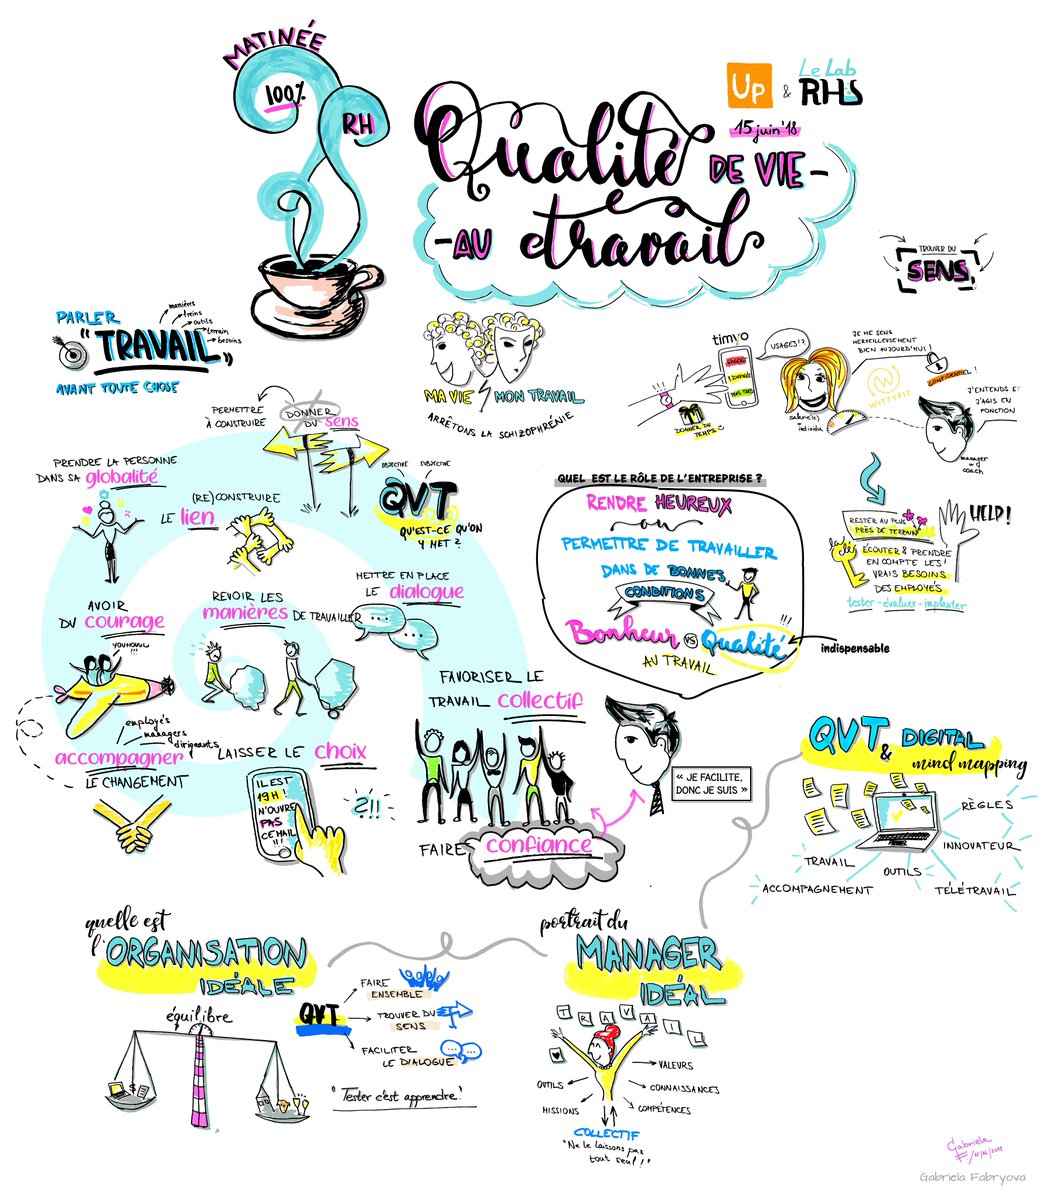 MATINÉE
100%
RH
Up & Le Lab
RHS
15 juin '18
Qualité DE VIE -
- AU travail
TROUVER DU
SENS
PARLER
"TRAVAIL"
AVANT TOUTE CHOSE
manières
freins
outils
terrain
besoins
MA VIE MON TRAVAIL
ARRÊTONS LA SCHIZOPHRÉNIE
timyo
URGENT
1 JOURNÉE
DONNER DU
TEMPS
USAGES!?
JE ME SENS
MERVEILLEUSEMENT
BIEN AUJOURD'HUI!
salarié(s)
individu
WITTYFIT
CONFIDENTIEL!
J'ENTENDS ET
J'AGIS EN
FONCTION
manager
=
coach
PERMETTRE
À CONSTRUIRE
DONNER
DU sens
PRENDRE LA PERSONNE
DANS SA globalité
(RE)CONSTRUIRE
LE lien
OBJECTIVE SUBJECTIVE
QVT
QU'EST-CE QU'ON
Y MET?
QUEL EST LE RÔLE DE L'ENTREPRISE ?
RENDRE HEUREUX
ou
PERMETTRE DE TRAVAILLER
DANS DE BONNES
CONDITIONS
!!!
Bonheur VS Qualité
AU TRAVAIL
indispensable
RESTER AU PLUS
PRÈS DE TERRAIN
HELP!
la clé
ÉCOUTER & PRENDRE
EN COMPTE LES!
VRAIS BESOINS
DES EMPLOYÉS
tester - évaluer - implanter
AVOIR
DU courage
YOUHOUUU
!!!
REVOIR LES
manières DE TRAVAILLER
METTRE EN PLACE
LE dialogue
employés
managers
dirigeants
accompagner
LE CHANGEMENT
LAISSER LE choix
IL EST
19H!
N'OUVRE
PAS
CE MAIL
!!!
?!!
FAVORISER LE
TRAVAIL collectif
FAIRE confiance
« JE FACILITE,
DONC JE SUIS »
QVT & DIGITAL
mind mapping
RÈGLES
INNOVATEUR
TRAVAIL
OUTILS
ACCOMPAGNEMENT
TÉLÉTRAVAIL
quelle est
l'ORGANISATION
IDÉALE
équilibre
$
QVT
FAIRE
ENSEMBLE
TROUVER DU
SENS
FACILITER
LE DIALOGUE
"Tester c'est apprendre."
portrait du
MANAGER
IDÉAL
TRAVAIL
OUTILS
MISSIONS
VALEURS
CONNAISSANCES
COMPÉTENCES
COLLECTIF
"Ne le laissons pas
tout seul!"
Gabriela
F/15/06/2018
Gabriela Fabryova